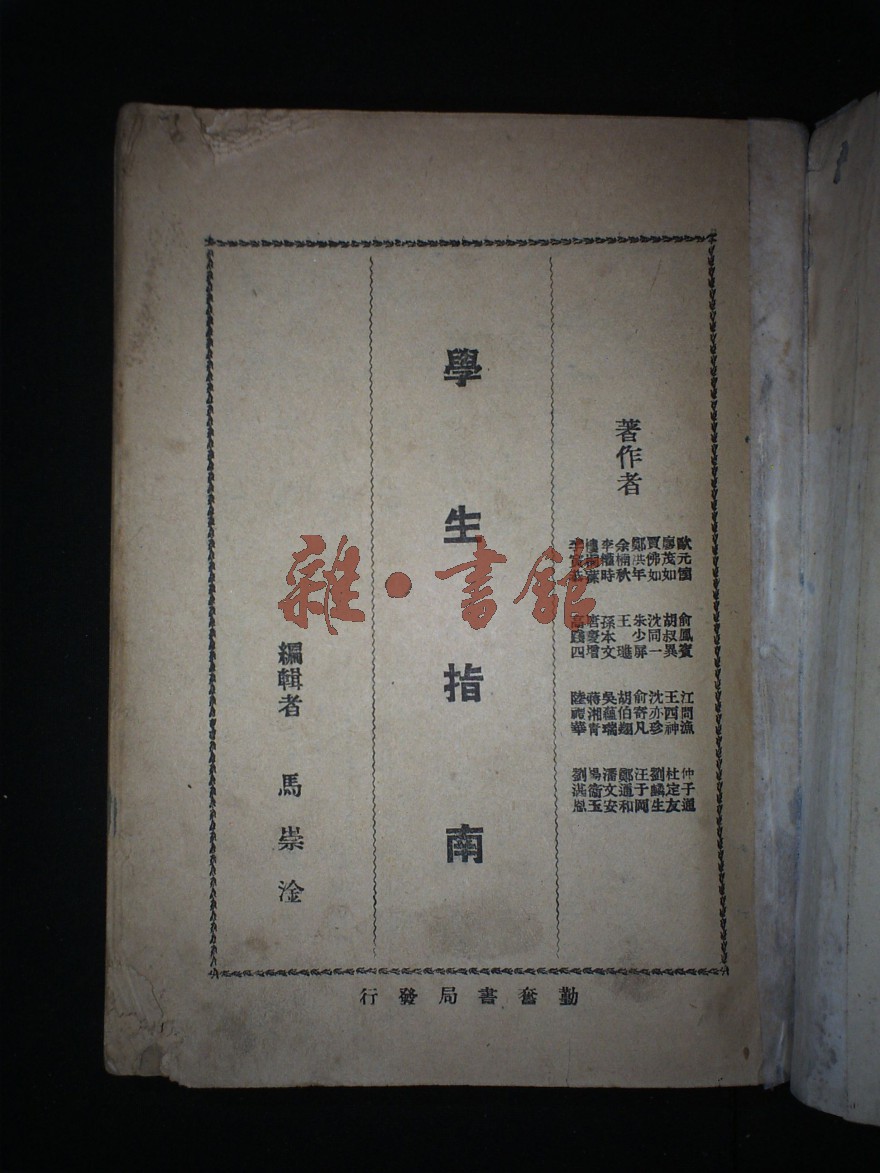 著作者
歐元懷 俞鳳賓 江問漁 仲子通
廖茂如 胡叔異 王西神 杜定友
賈佛如 沈同一 沈亦珍 劉麟生
鄭洪年 朱少屏 俞寄凡 汪于岡
余楠秋 王璡 胡伯翔 鄭通和
李權時 孫本文 吳蘊瑞 潘文安
樓桐蓀 唐慶增 蔣湘青 楊衞玉
高踐四 陸禮華 劉湛恩
學生指南
編輯者 馬崇淦
勤奮書局發行
雜·書館